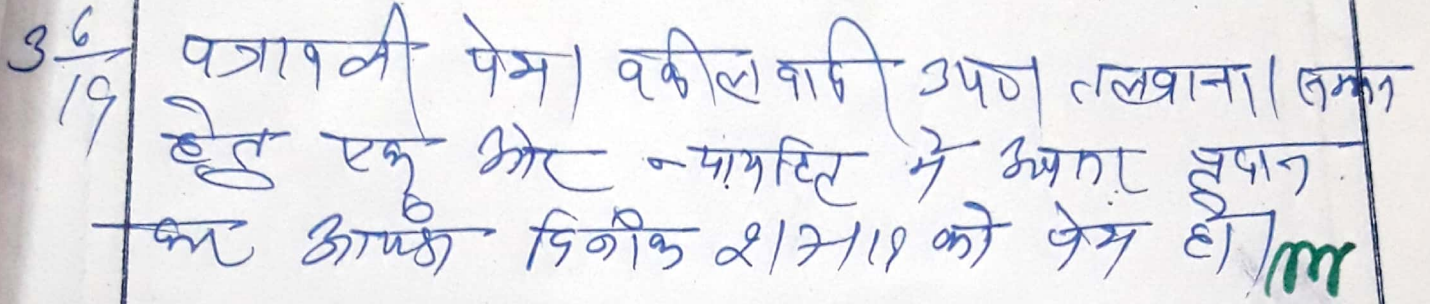 3 6/19 पत्रावली पेश। वकील वादी उप० तलवाना। सम्मन
हेतु एक और न्यायहित में अवसर प्रदान
कर आगामी दिनांक 2/7/19 को पेश हो।